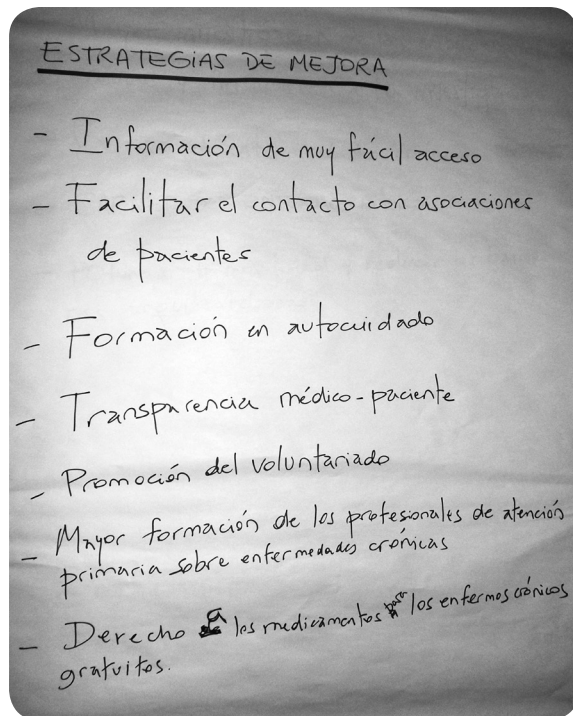 ESTRATEGIAS DE MEJORA
- Información de muy fácil acceso
- Facilitar el contacto con asociaciones
de pacientes
- Formación en autocuidado
- Transparencia médico-paciente
- Promoción del voluntariado
- Mayor formación de los profesionales de atención
primaria sobre enfermedades crónicas
- Derecho a los medicamentos para los enfermos crónicos
gratuitos.